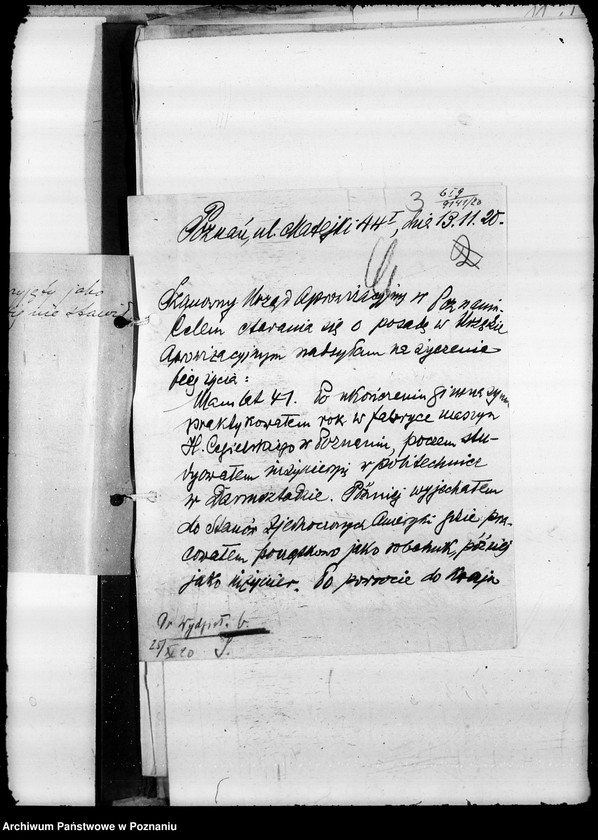 3
619
9141/20
Poznań, ul. Matejki 44 I, dnia 13.11.20.
2
Szanowny Urząd Aprowizacyjny w Poznaniu.
Celem starania się o posadę w Urzędzie
Aprowizacyjnym nadsyłam na życzenie
bieg życia:
Mam lat 41. Po ukończeniu gimnazyum
praktykowałem rok w fabryce maszyn
H. Cegielskiego w Poznaniu, poczem stu-
dyowałem inżynierję w politechnice
w Darmsztadzie. Później wyjechałem
do Stanów Zjednoczonych Ameryki gdzie pra-
cowałem początkowo jako robotnik, później
jako inżynier. Po powrocie do Kraju
jako
Archiwum Państwowe w Poznaniu